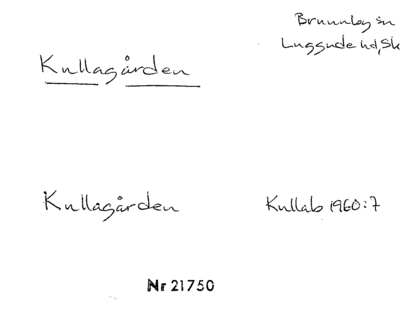 Brunnby sn
Luggude hd, Sk
Kullagården
Kullagården
Kullab 1960:7
Nr 21750